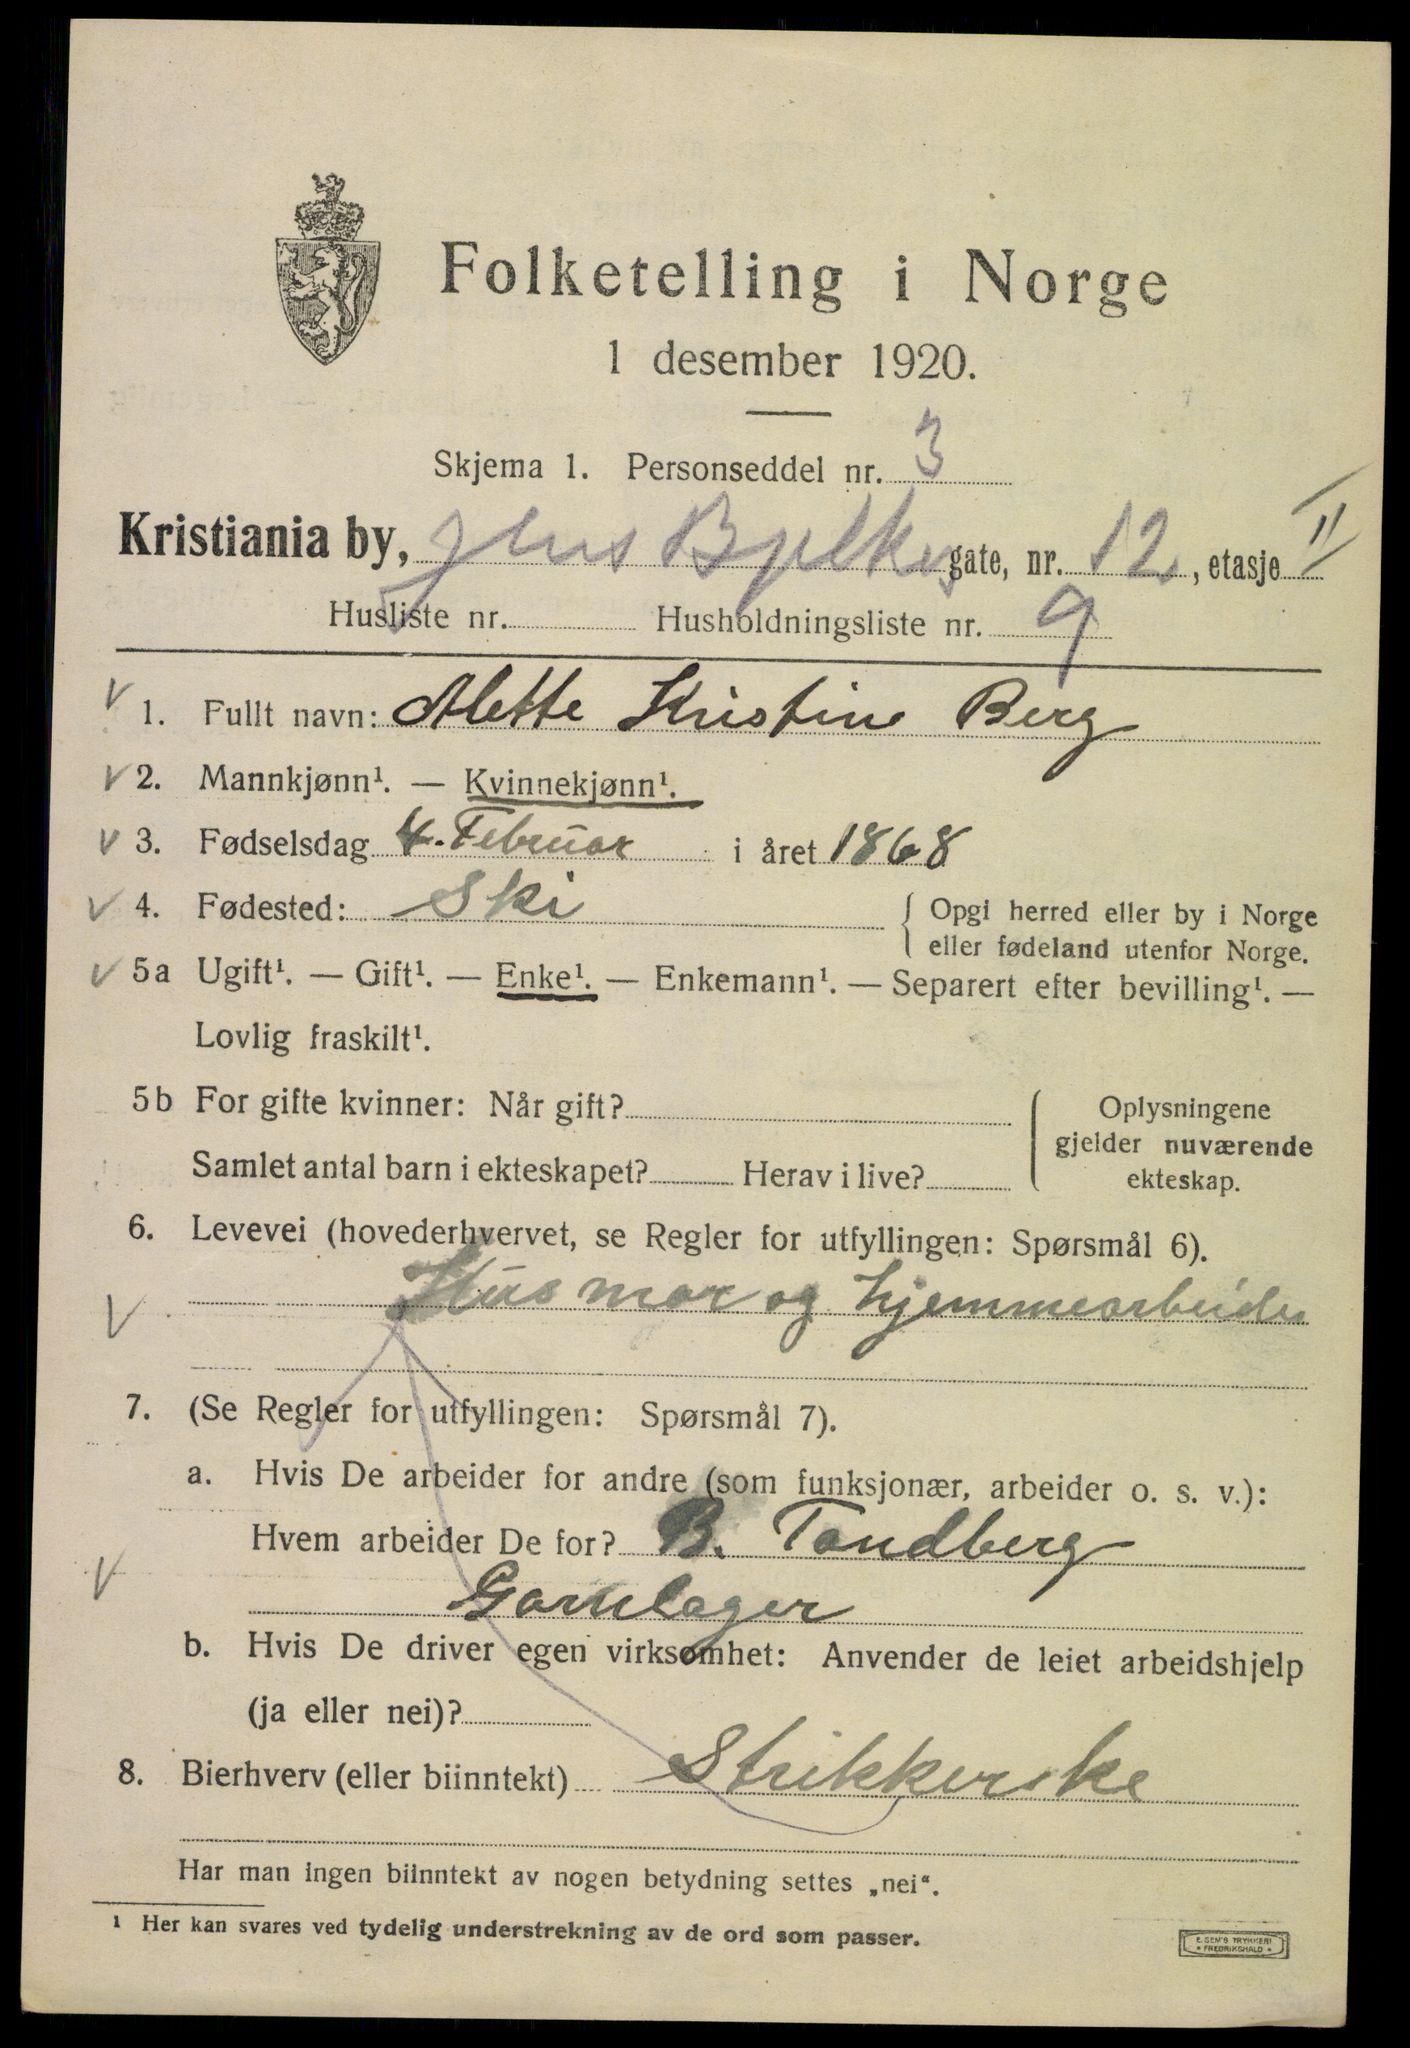 Folketelling i Norge
1 desember 1920.
Skjema 1. Personseddel nr. 3
Kristiania by, Jens Bjelkes gate, nr. 12, etasje II
Husliste nr. Husholdningsliste nr. 9
1. Fullt navn: Alette Kristine Berg
2. Mannkjønn¹. — Kvinnekjønn¹.
3. Fødselsdag 4. Februar i året 1868
4. Fødested: Ski { Opgi herred eller by i Norge
eller fødeland utenfor Norge.
5a Ugift¹. — Gift¹. — Enke¹. — Enkemann¹. — Separert efter bevilling¹. —
Lovlig fraskilt¹.
5b For gifte kvinner: Når gift?
Samlet antal barn i ekteskapet? Herav i live?
{ Oplysningene
gjelder nuværende
ekteskap.
6. Levevei (hovederhvervet, se Regler for utfyllingen: Spørsmål 6).
Husmor og hjemmearbeider
7. (Se Regler for utfyllingen: Spørsmål 7).
a. Hvis De arbeider for andre (som funksjonær, arbeider o. s. v.):
Hvem arbeider De for? B. Tandberg
Garnlager
b. Hvis De driver egen virksomhet: Anvender de leiet arbeidshjelp
(ja eller nei)?
8. Bierhverv (eller biinntekt) Strikkerske
Har man ingen biinntekt av nogen betydning settes „nei“.
¹ Her kan svares ved tydelig understrekning av de ord som passer.
E. SEM'S TRYKKERI
• FREDRIKSHALD •